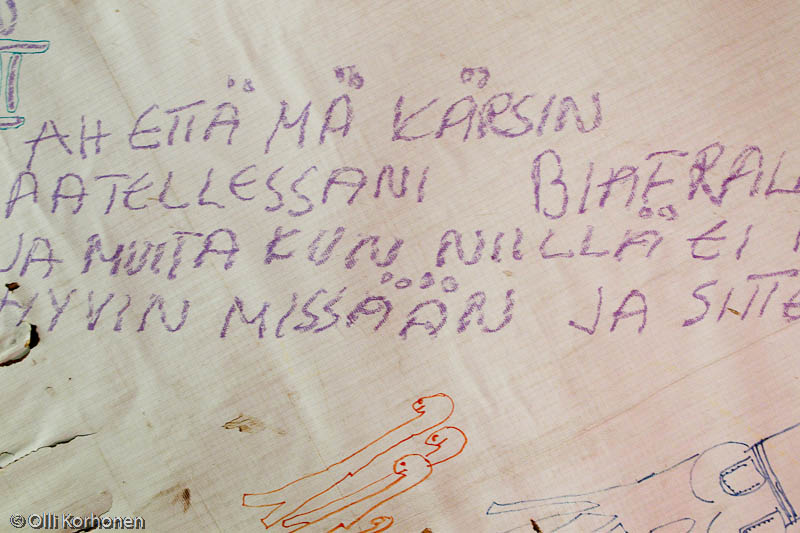 AH ETTÄ MÄ KÄRSIN
AATELLESSANI BIAFRAL
JA MUITA KUN NIILLÄ EI
HYVIN MISSÄÄN JA SIITE
© Olli Korhonen